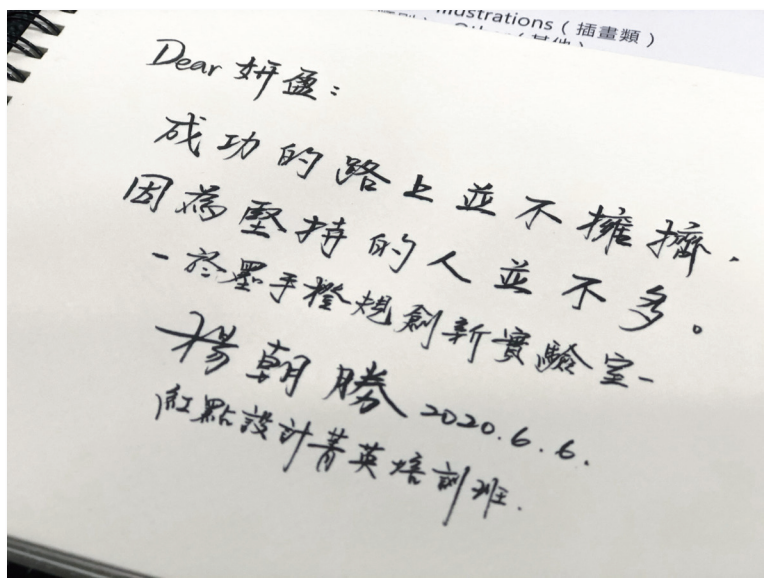 Illustrations(插畫類)
Dear 妍盈:
成功的路上並不擁擠.
因為堅持的人並不多。
-於墨手橙規創新實驗室-
楊朝勝 2020.6.6.
紅點設計菁英培訓班.